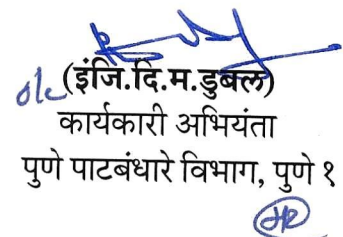 o/c (इंजि.दि.म.डुबल)
कार्यकारी अभियंता
पुणे पाटबंधारे विभाग, पुणे १